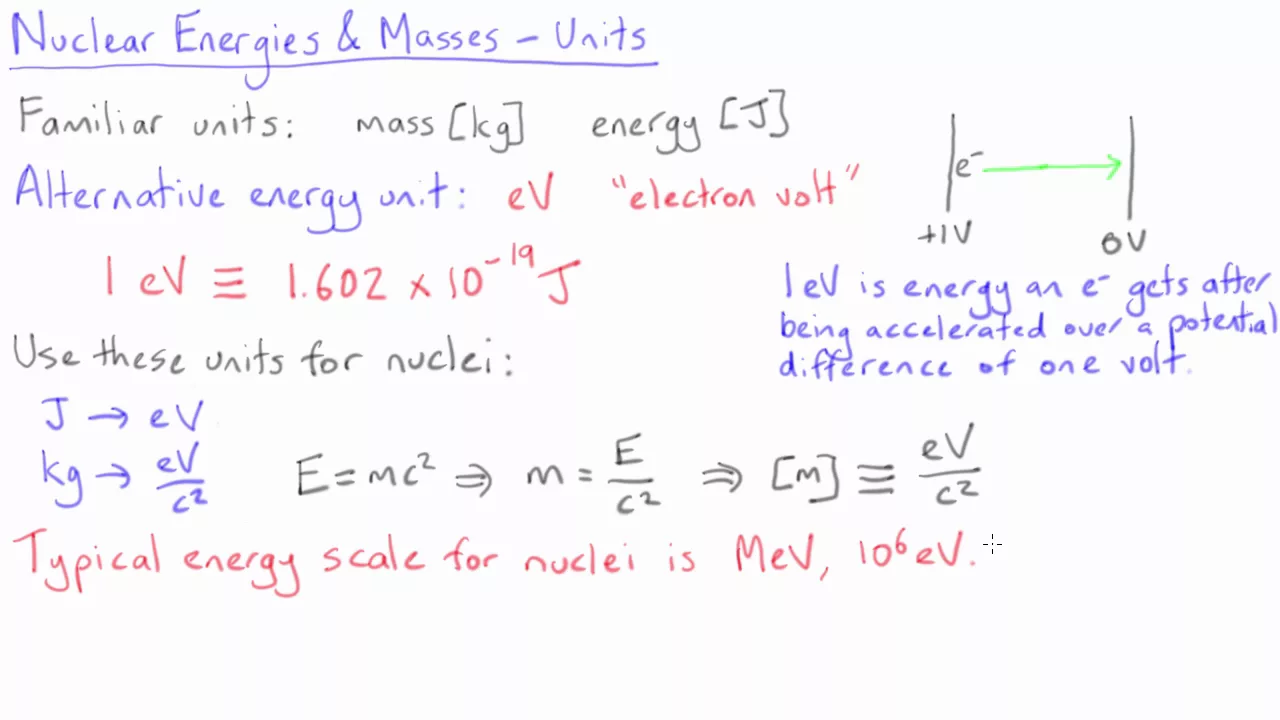 Nuclear Energies & Masses – Units
Familiar units: mass [kg] energy [J]
Alternative energy unit: eV "electron volt"
1 eV ≡ 1.602 × 10⁻¹⁹ J
e⁻
+1V 0V
1eV is energy an e⁻ gets after
being accelerated over a potential
difference of one volt.
Use these units for nuclei:
J → eV
kg → eV/c² E = mc² ⇒ m = E/c² ⇒ [m] ≡ eV/c²
Typical energy scale for nuclei is MeV, 10⁶ eV.